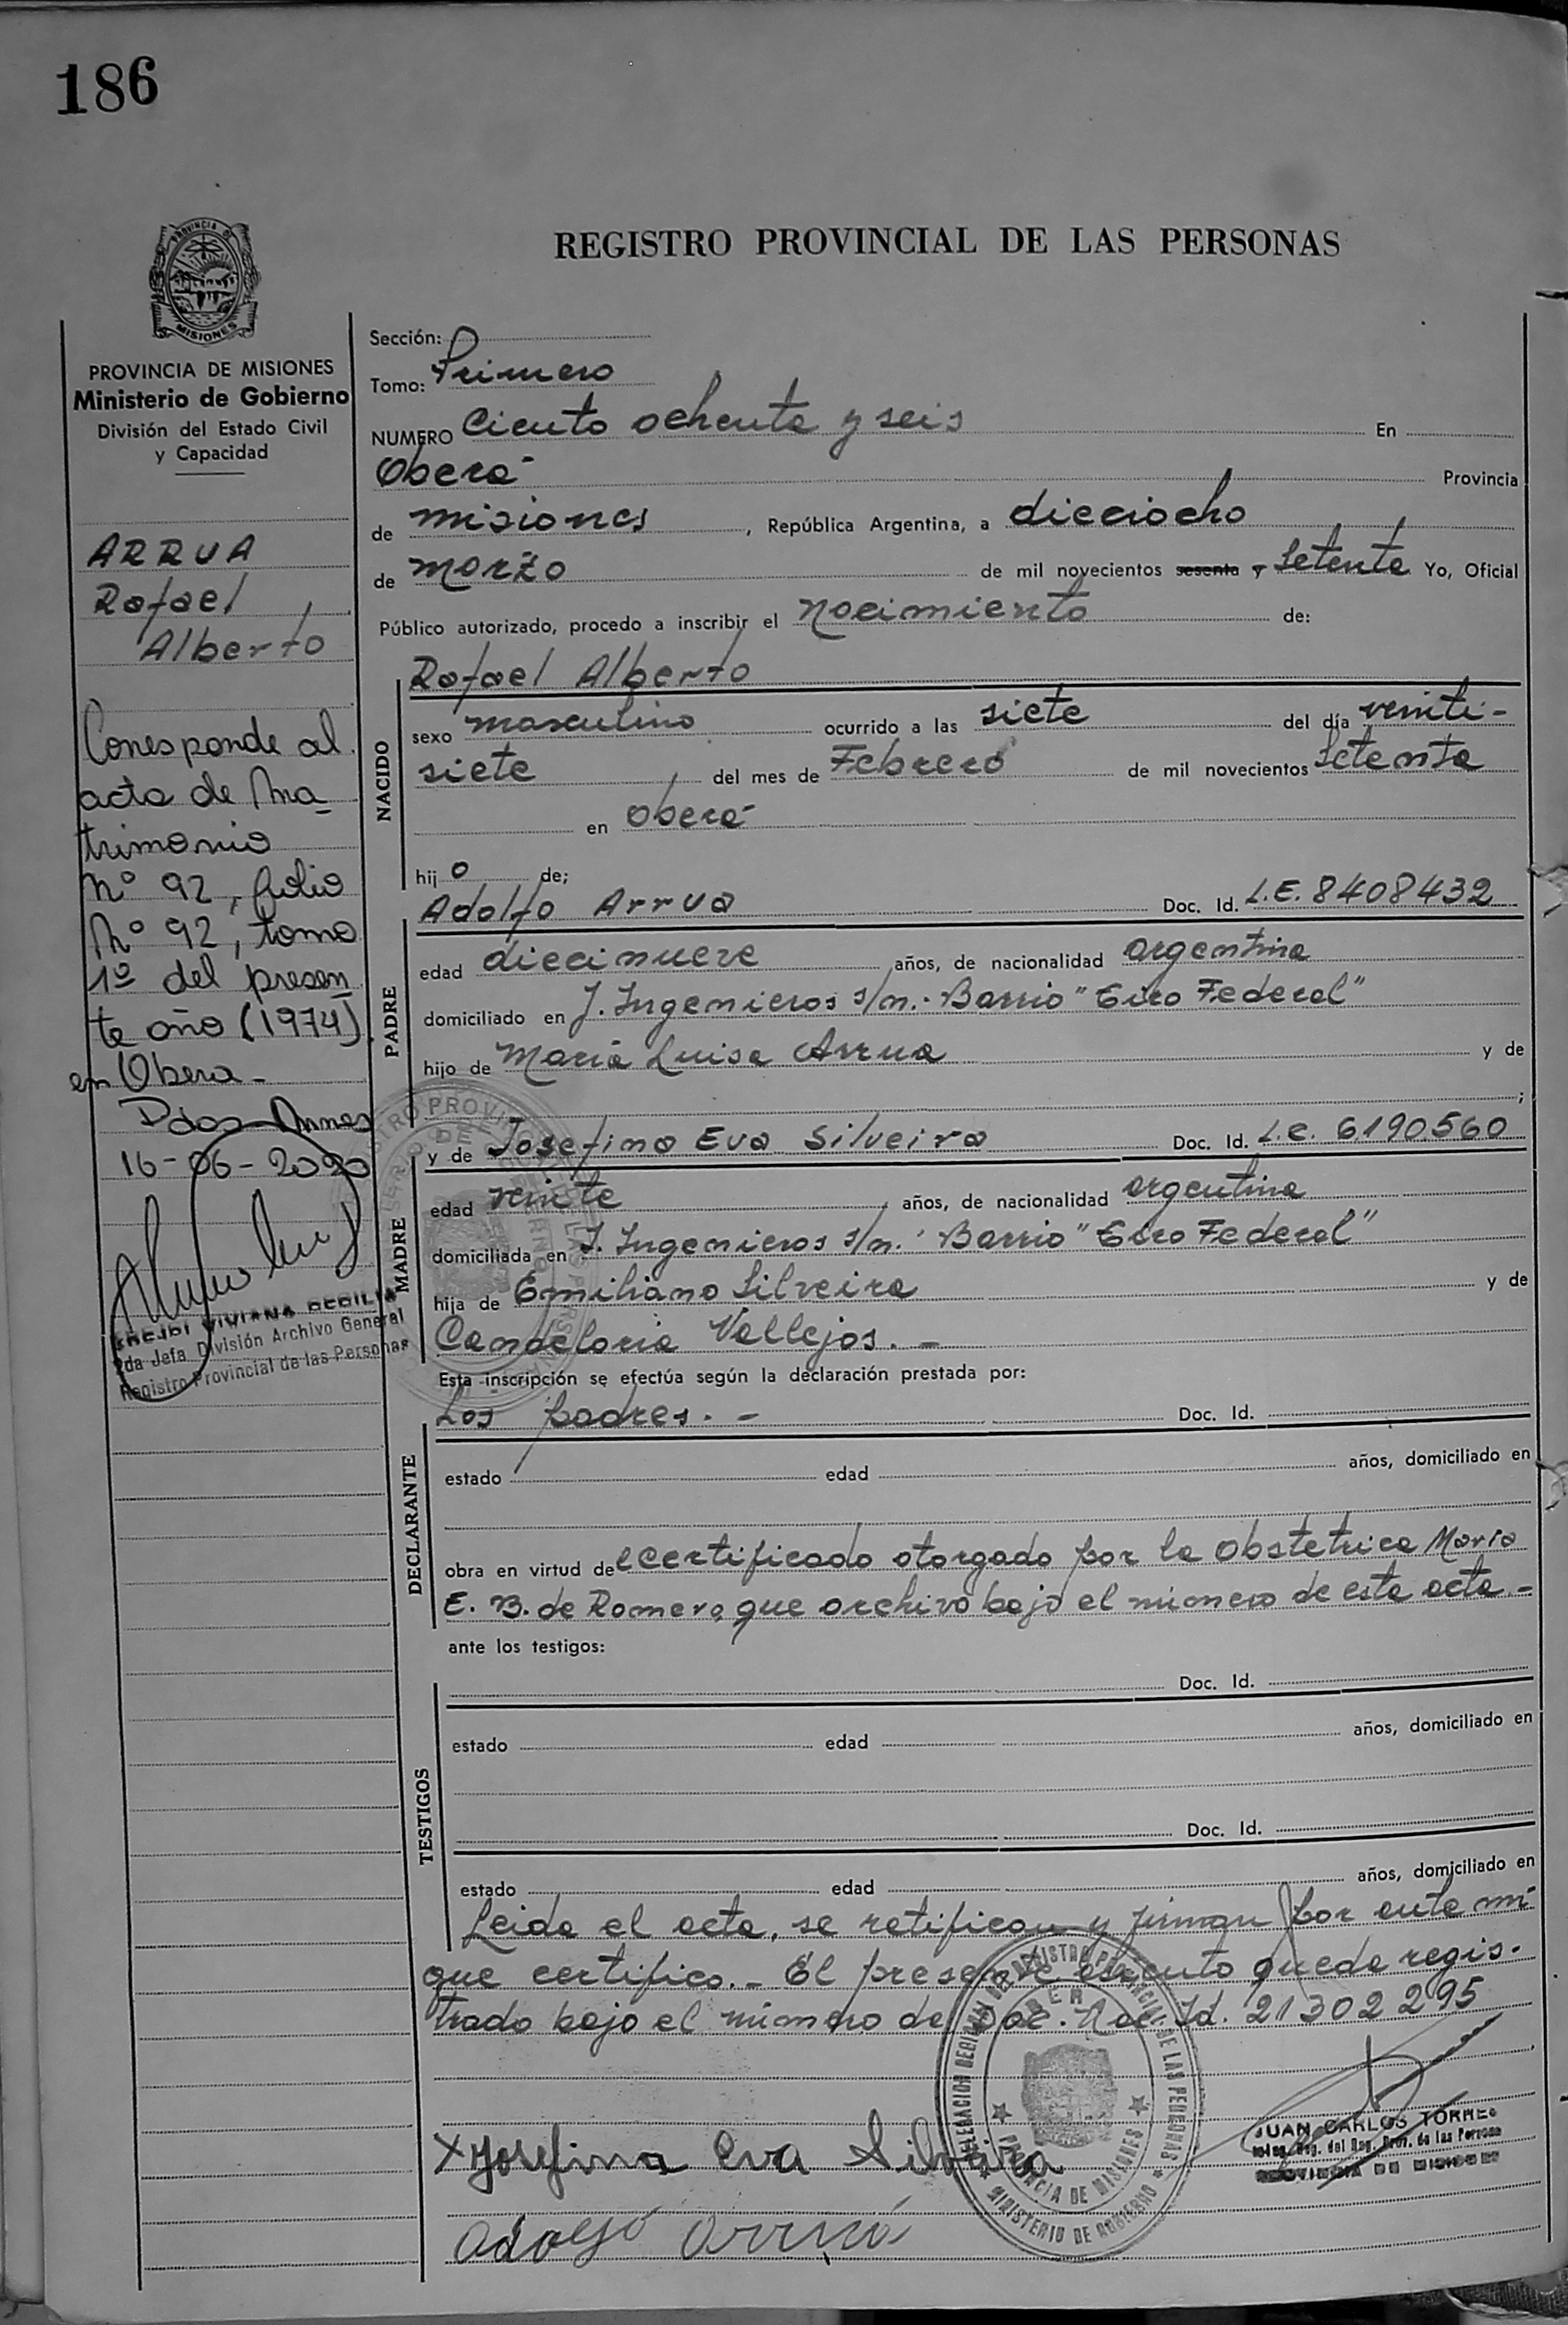 186
REGISTRO PROVINCIAL DE LAS PERSONAS
PROVINCIA DE
MISIONES
PROVINCIA DE MISIONES
Ministerio de Gobierno
División del Estado Civil
y Capacidad
ARRUA
Rafael
Alberto
Corresponde al
acta de Ma-
trimonio
Nº 92, folio
Nº 92, tomo
1º del presen
te año (1974)
en Obera -
Pdas
16-06-2020
VIVIANA
2da Jefa División Archivo General
Registro Provincial de las Personas
Sección:
Tomo: Primero
NUMERO Ciento ochenta y seis En
Oberá Provincia
de misiones, República Argentina, a dieciocho
de marzo de mil novecientos sesenta y setenta Yo, Oficial
Público autorizado, procedo a inscribir el nacimiento de:
Rafael Alberto
NACIDO
sexo masculino ocurrido a las siete del día veinti-
siete del mes de Febrero de mil novecientos setenta
en Oberá
hijo de;
Adolfo Arrua Doc. Id. L.E. 8408432
PADRE
edad diecinueve años, de nacionalidad argentina
domiciliado en J. Ingenieros s/n.- Barrio "Tiro Federal"
hijo de Maria Luisa Arrua y de
;
y de Josefina Eva Silveira Doc. Id. L.C. 6.190.560
MADRE
edad veinte años, de nacionalidad argentina
domiciliada en J. Ingenieros s/n. Barrio "Tiro Federal"
hija de Emiliano Silveira y de
Candelaria Vallejos. -
Esta inscripción se efectúa según la declaración prestada por:
Los padres. - Doc. Id.
DECLARANTE
estado edad años, domiciliado en
obra en virtud del certificado otorgado por la Obstetrica Maria
E. B. de Romero, que archivo bajo el número de esta acta. -
ante los testigos:
Doc. Id.
TESTIGOS
estado edad años, domiciliado en
Doc. Id.
estado edad años, domiciliado en
Leida el acta, se ratifican y firman por ante mi
que certifico. - El presente asiento queda regis-
trado bajo el número de Doc. Nac. Id. 21302295
DELEGACION REGIONAL DEL REGISTRO PROVINCIAL DE LAS PERSONAS
PROVINCIA DE MISIONES
MINISTERIO DE GOBIERNO
X Josefina Eva Silveira
JUAN CARLOS TORRES
Reg. del Reg. Prov. de las Personas
PROVINCIA DE MISIONES
Adolfo Arrua